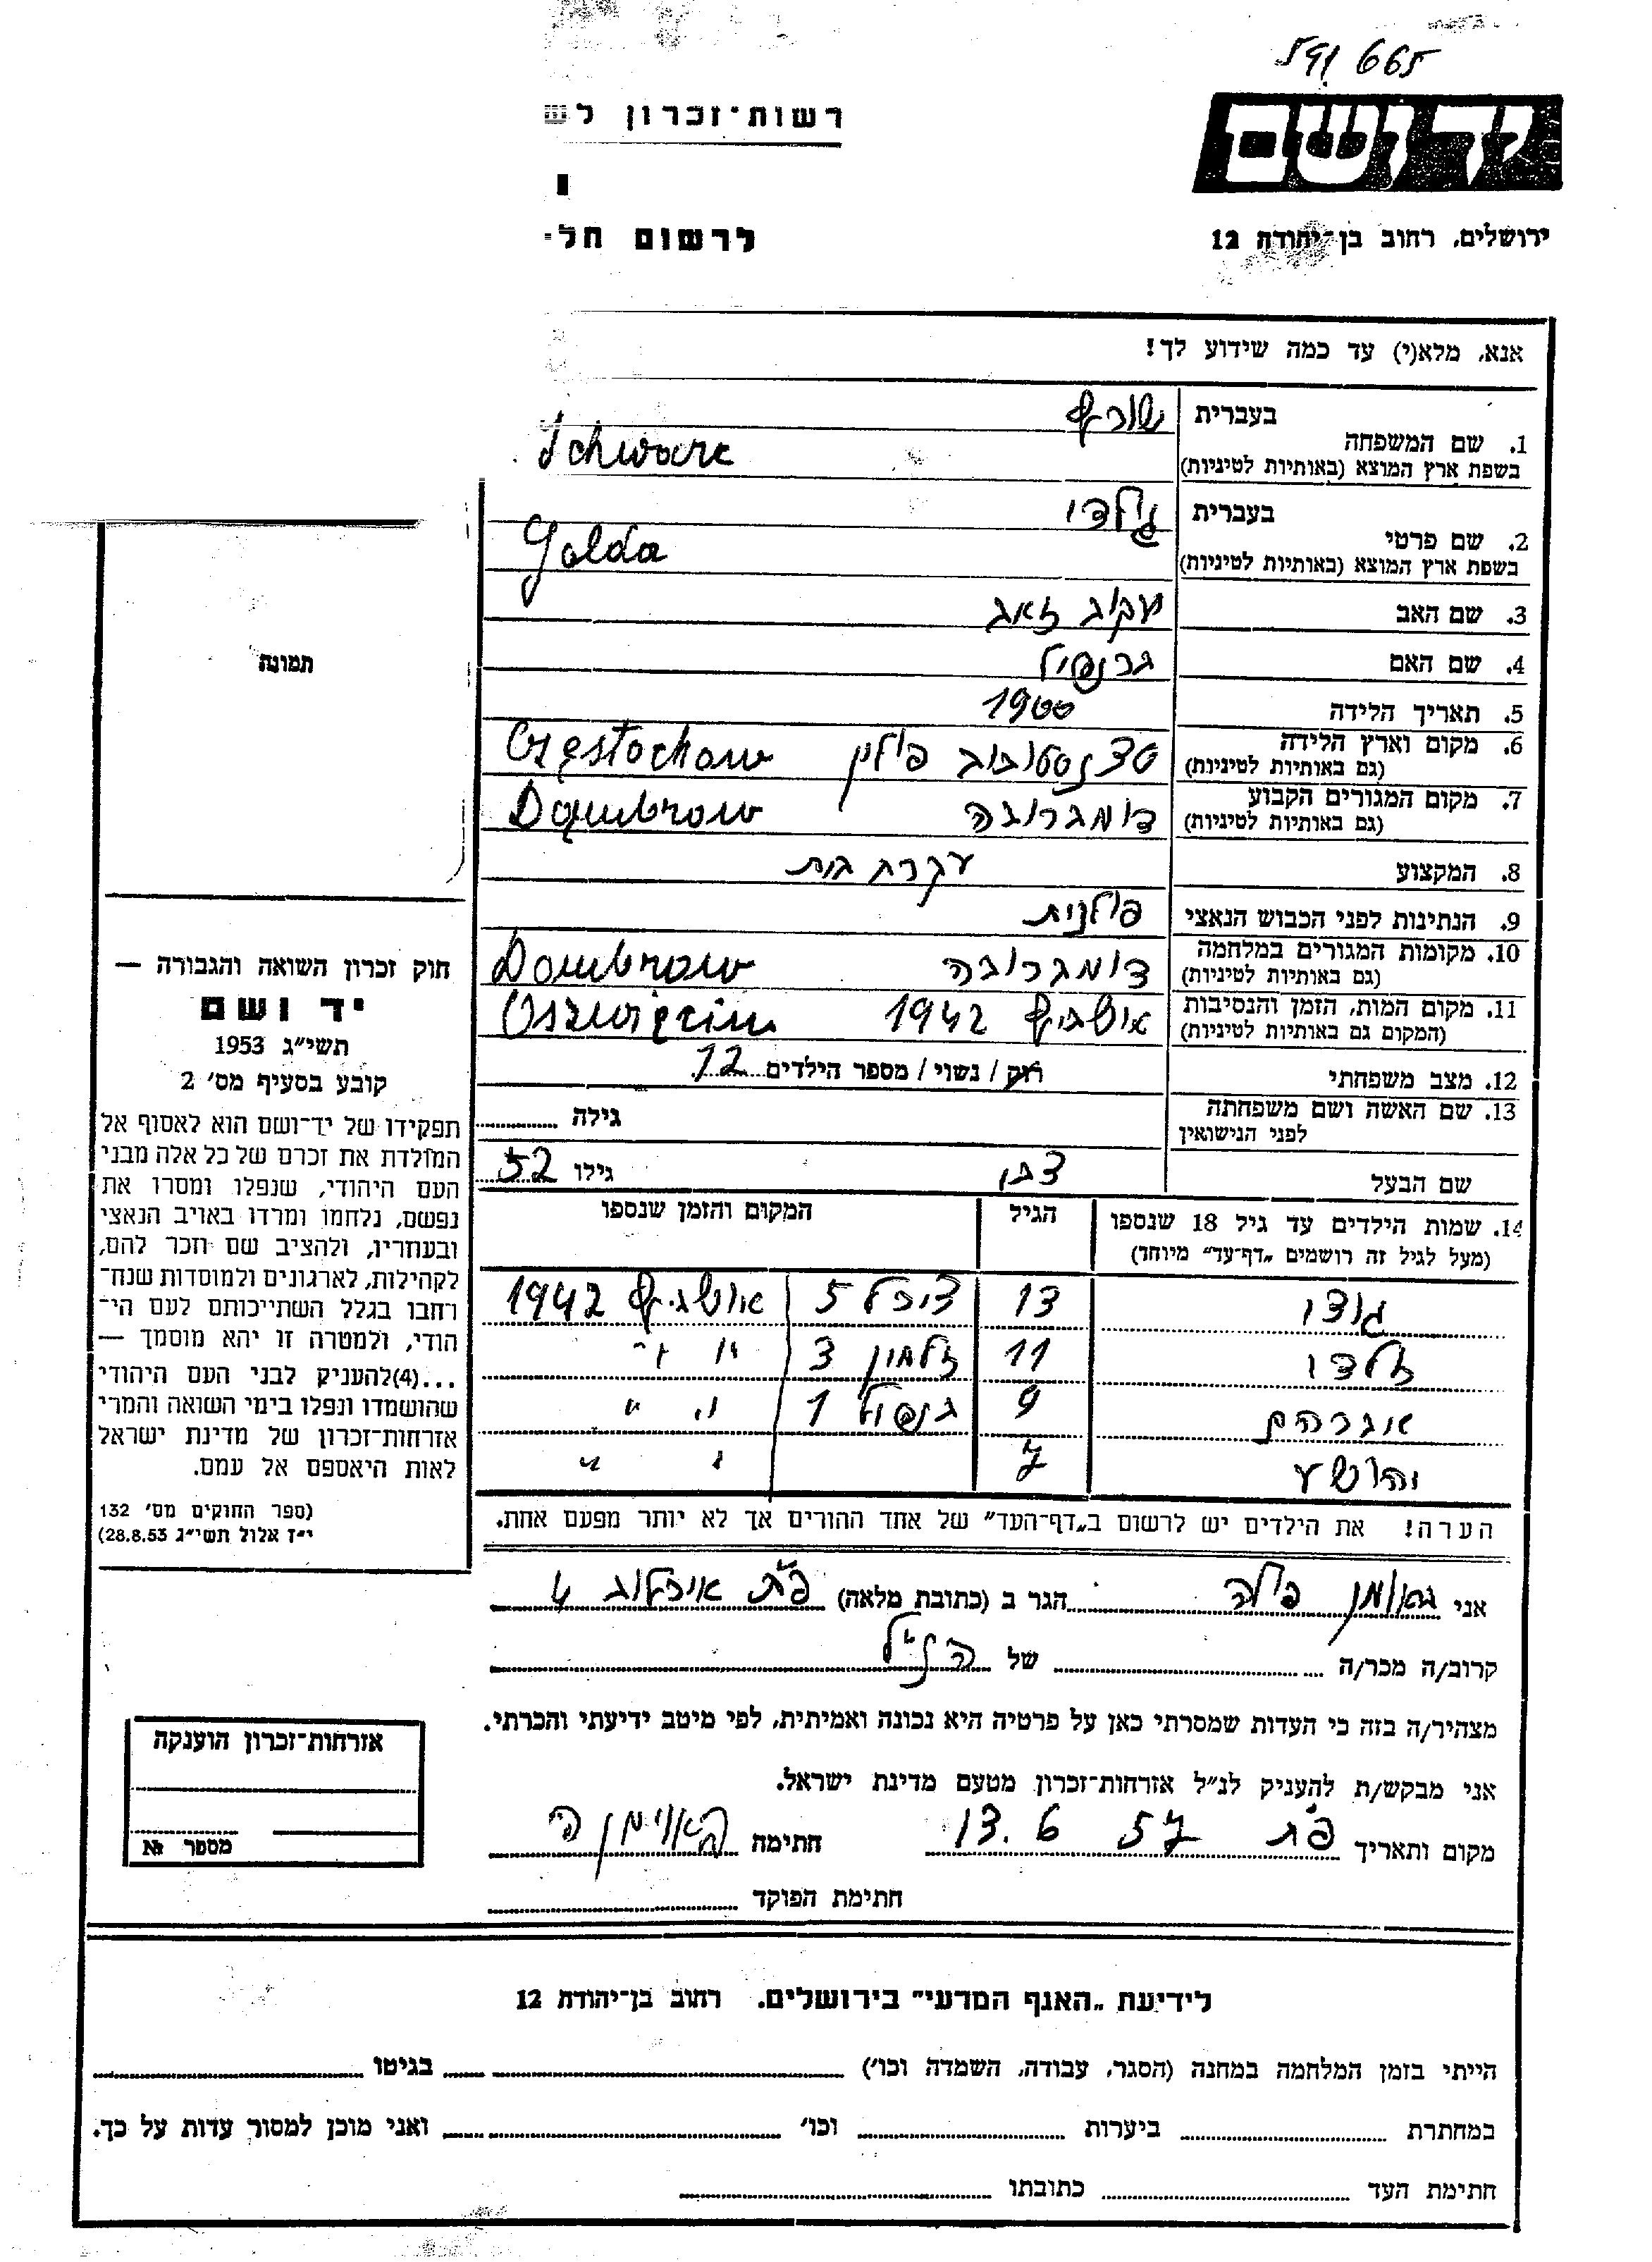 665
רשות־זכרון
ושם
ירושלים, רחוב בן־יהודה 12
לרשום
אנא, מלא(י) עד כמה שידוע לך!
1. שם המשפחה
בעברית שורץ
בשפת ארץ המוצא (באותיות לטיניות) Schwarc
2. שם פרטי
בעברית גולדה
בשפת ארץ המוצא (באותיות לטיניות) Golda
3. שם האב
4. שם האם
5. תאריך הלידה 1900
6. מקום וארץ הלידה פולין Częstochow
(גם באותיות לטיניות)
7. מקום המגורים הקבוע דומברובה Dąmbrow
(גם באותיות לטיניות)
8. המקצוע עקרת בית
9. הנתינות לפני הכבוש הנאצי פולנית
10. מקומות המגורים במלחמה דומברובה Dombrow
(גם באותיות לטיניות)
11. מקום המות, הזמן והנסיבות 1942
(המקום גם באותיות לטיניות)
12. מצב משפחתי רוק / נשוי / מספר הילדים 12
13. שם האשה ושם משפחתה גילה
לפני הנישואין
שם הבעל גילו 52
14. שמות הילדים עד גיל 18 שנספו הגיל המקום והזמן שנספו
(מעל לגיל זה רושמים „דף־עד” מיוחד)
13 5 1942
11 זלמן 3 " "
אברהם 9 1 " "
יהושע 7 " "
הערה! את הילדים יש לרשום ב„דף־העד” של אחד ההורים אך לא יותר מפעם אחת.
תמונה
חוק זכרון השואה והגבורה —
יד ושם
תשי״ג 1953
קובע בסעיף מס׳ 2
תפקידו של יד־ושם הוא לאסוף אל
המולדת את זכרם של כל אלה מבני
העם היהודי, שנפלו ומסרו את
נפשם, נלחמו ומרדו באויב הנאצי
ובעוזריו, ולהציב שם וזכר להם,
לקהילות, לארגונים ולמוסדות שנח־
רחבו בגלל השתייכותם לעם הי־
הודי, ולמטרה זו יהא מוסמך —
...(4)להעניק לבני העם היהודי
שהושמדו ונפלו בימי השואה והמרי
אזרחות־זכרון של מדינת ישראל
לאות היאספם אל עמם.
(ספר החוקים מס׳ 132
י״ז אלול תשי״ג 28.8.53)
אני הגר ב (כתובת מלאה) פ״ת
קרוב/ה מכר/ה של הנ״ל
מצהיר/ה בזה כי העדות שמסרתי כאן על פרטיה היא נכונה ואמיתית, לפי מיטב ידיעתי והכרתי.
אני מבקש/ת להעניק לנ״ל אזרחות־זכרון מטעם מדינת ישראל.
מקום ותאריך פ״ת 57 6 .13 חתימה
חתימת הפוקד
אזרחות־זכרון הוענקה
מספר №
לידיעת „האגף המדעי” בירושלים. רחוב בן־יהודה 12
הייתי בזמן המלחמה במחנה (הסגר, עבודה, השמדה וכו׳) בגיטו
במחתרת ביערות וכו׳ ואני מוכן למסור עדות על כך.
חתימת העד כתובתו